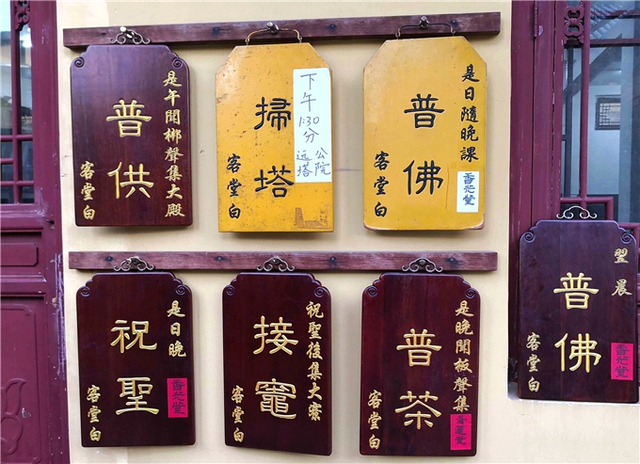 是午聞梆聲集大殿
普供
客堂白
下午1:30分
公院
塔
掃塔
客堂白
是日隨晚課
普佛
客堂白
是日晚
祝聖
客堂白
祝聖後集大寮
接竈
客堂白
是晚聞板聲集
普茶
客堂白
翌晨
普佛
客堂白